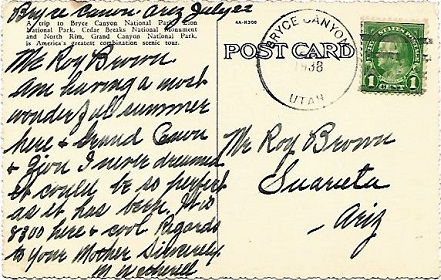 Bryce Canon Ariz July 22
A trip to Bryce Canyon National Park, Zion
National Park, Cedar Breaks National Monument
and North Rim, Grand Canyon National Park,
is America's greatest combination scenic tour.
4A-H308
POST CARD
BRYCE CANYON
1938
UTAH
1 CENT 1
Mr Roy Brown
Am having a most
wonderful summer
here & Grand Canon
& Zion I never dreamed
it could be so perfect
as it has been. It is
8300 here & cool Regards
to your Mother Sincerely
M
Mr Roy Brown
Ariz